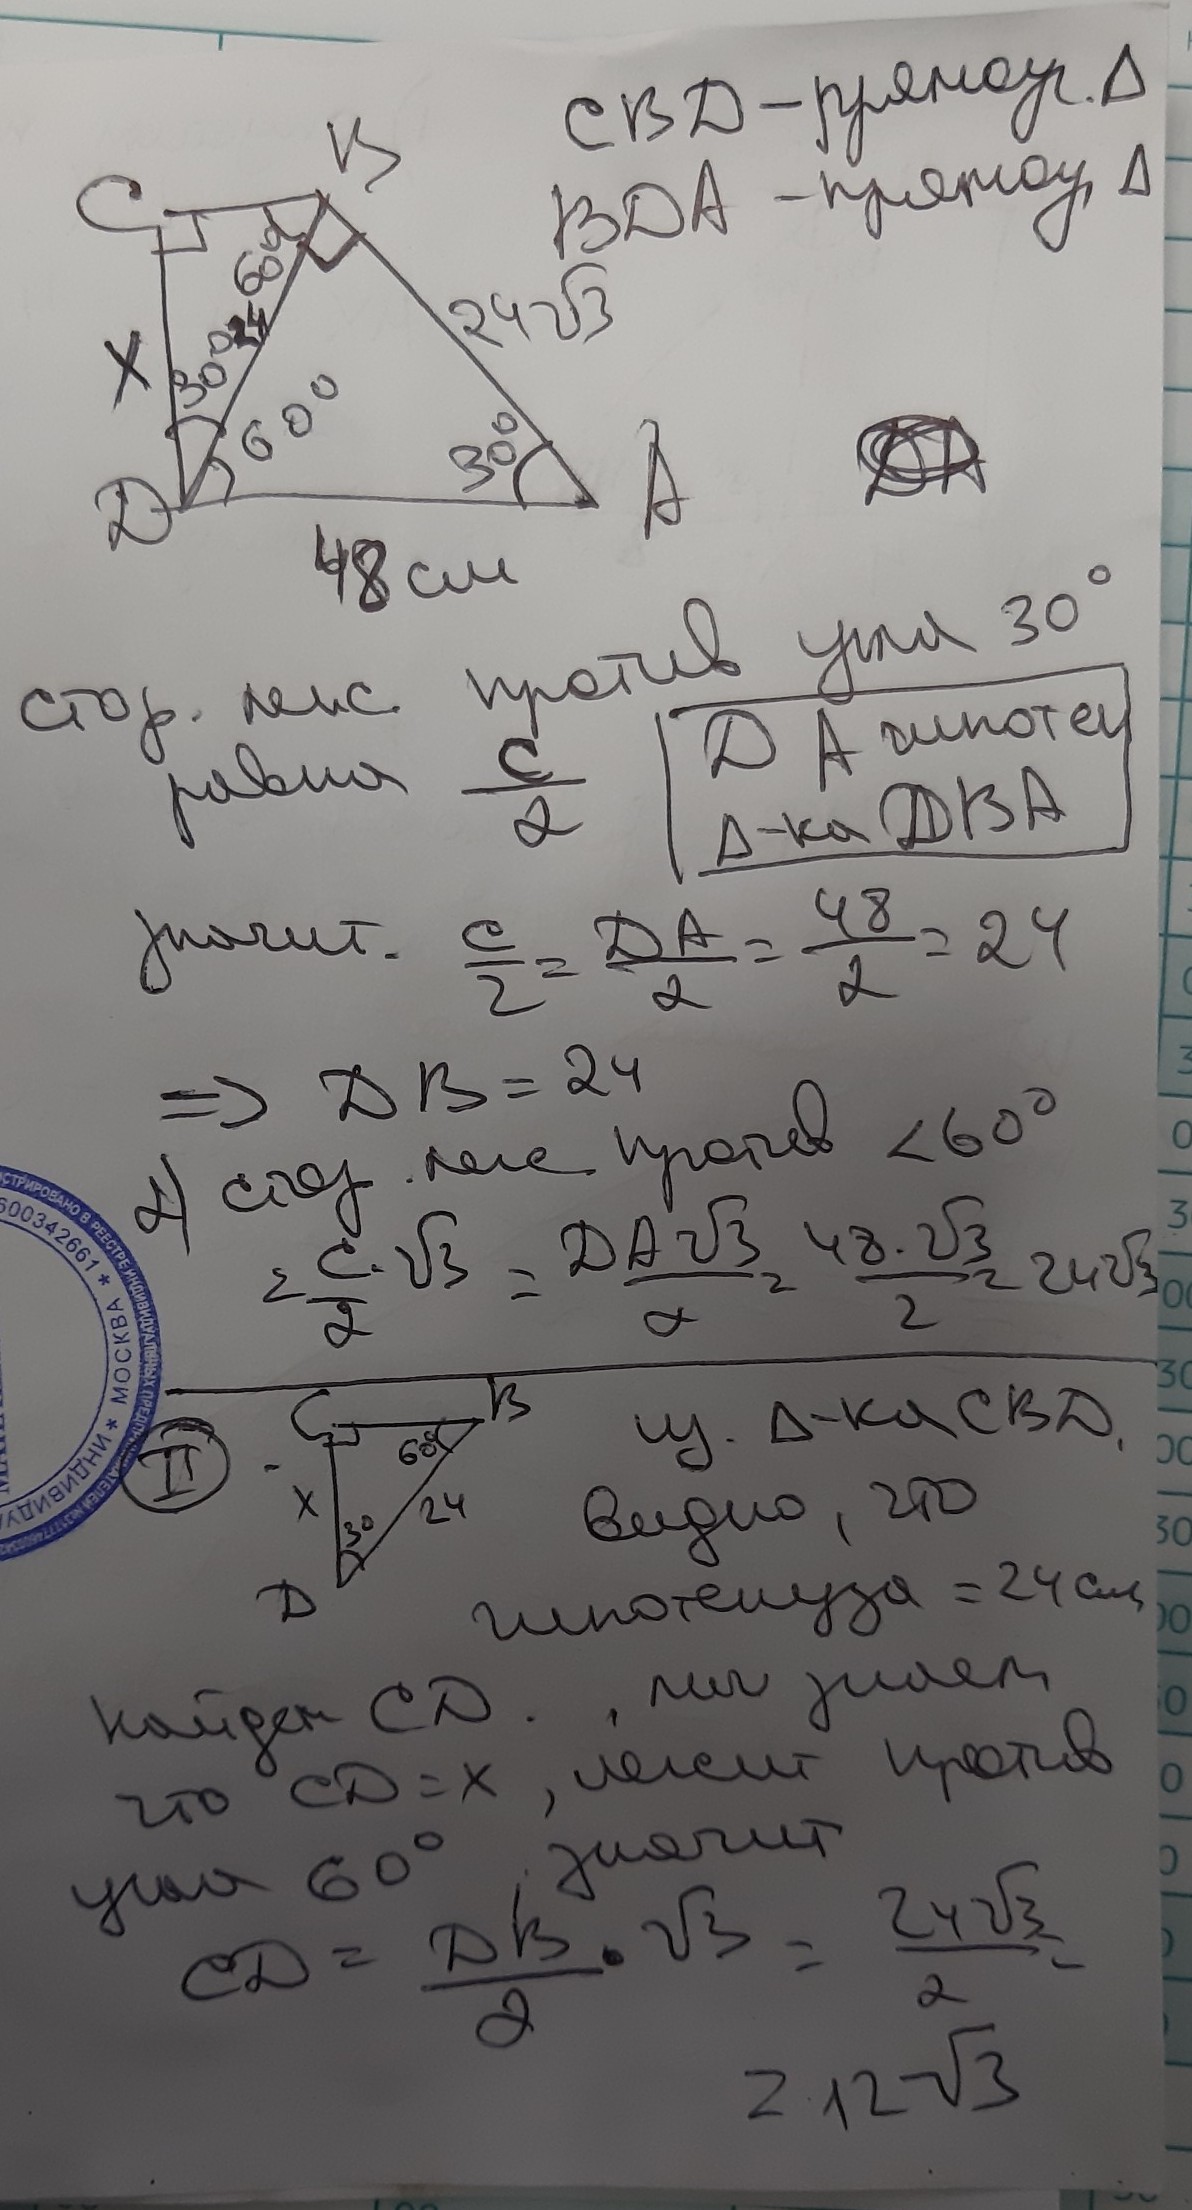 CBD – прямоуг. Δ
BDA – прямоуг. Δ
C
B
60°
24
24√3
X
30°
60°
30°
D
A
48 см
DA
стор. леж. против угла 30°
равна c/2
DA гипотен
Δ-ка DBA
значит. c/2 = DA/2 = 48/2 = 24
=> DB = 24
2) стор. леж. против <60°
= c/2 · √3 = DA√3/2 = 48·√3/2 = 24√3
II
C
B
60°
X
24
30
D
из. Δ-ка CBD.
видно, что
гипотенуза = 24 см
найдем CD. , мы знаем
что CD = x, лежит против
угла 60°, значит
CD = DB/2 · √3 = 24√3/2 =
= 12√3
600342661 * МОСКВА * ИНДИВИДУ